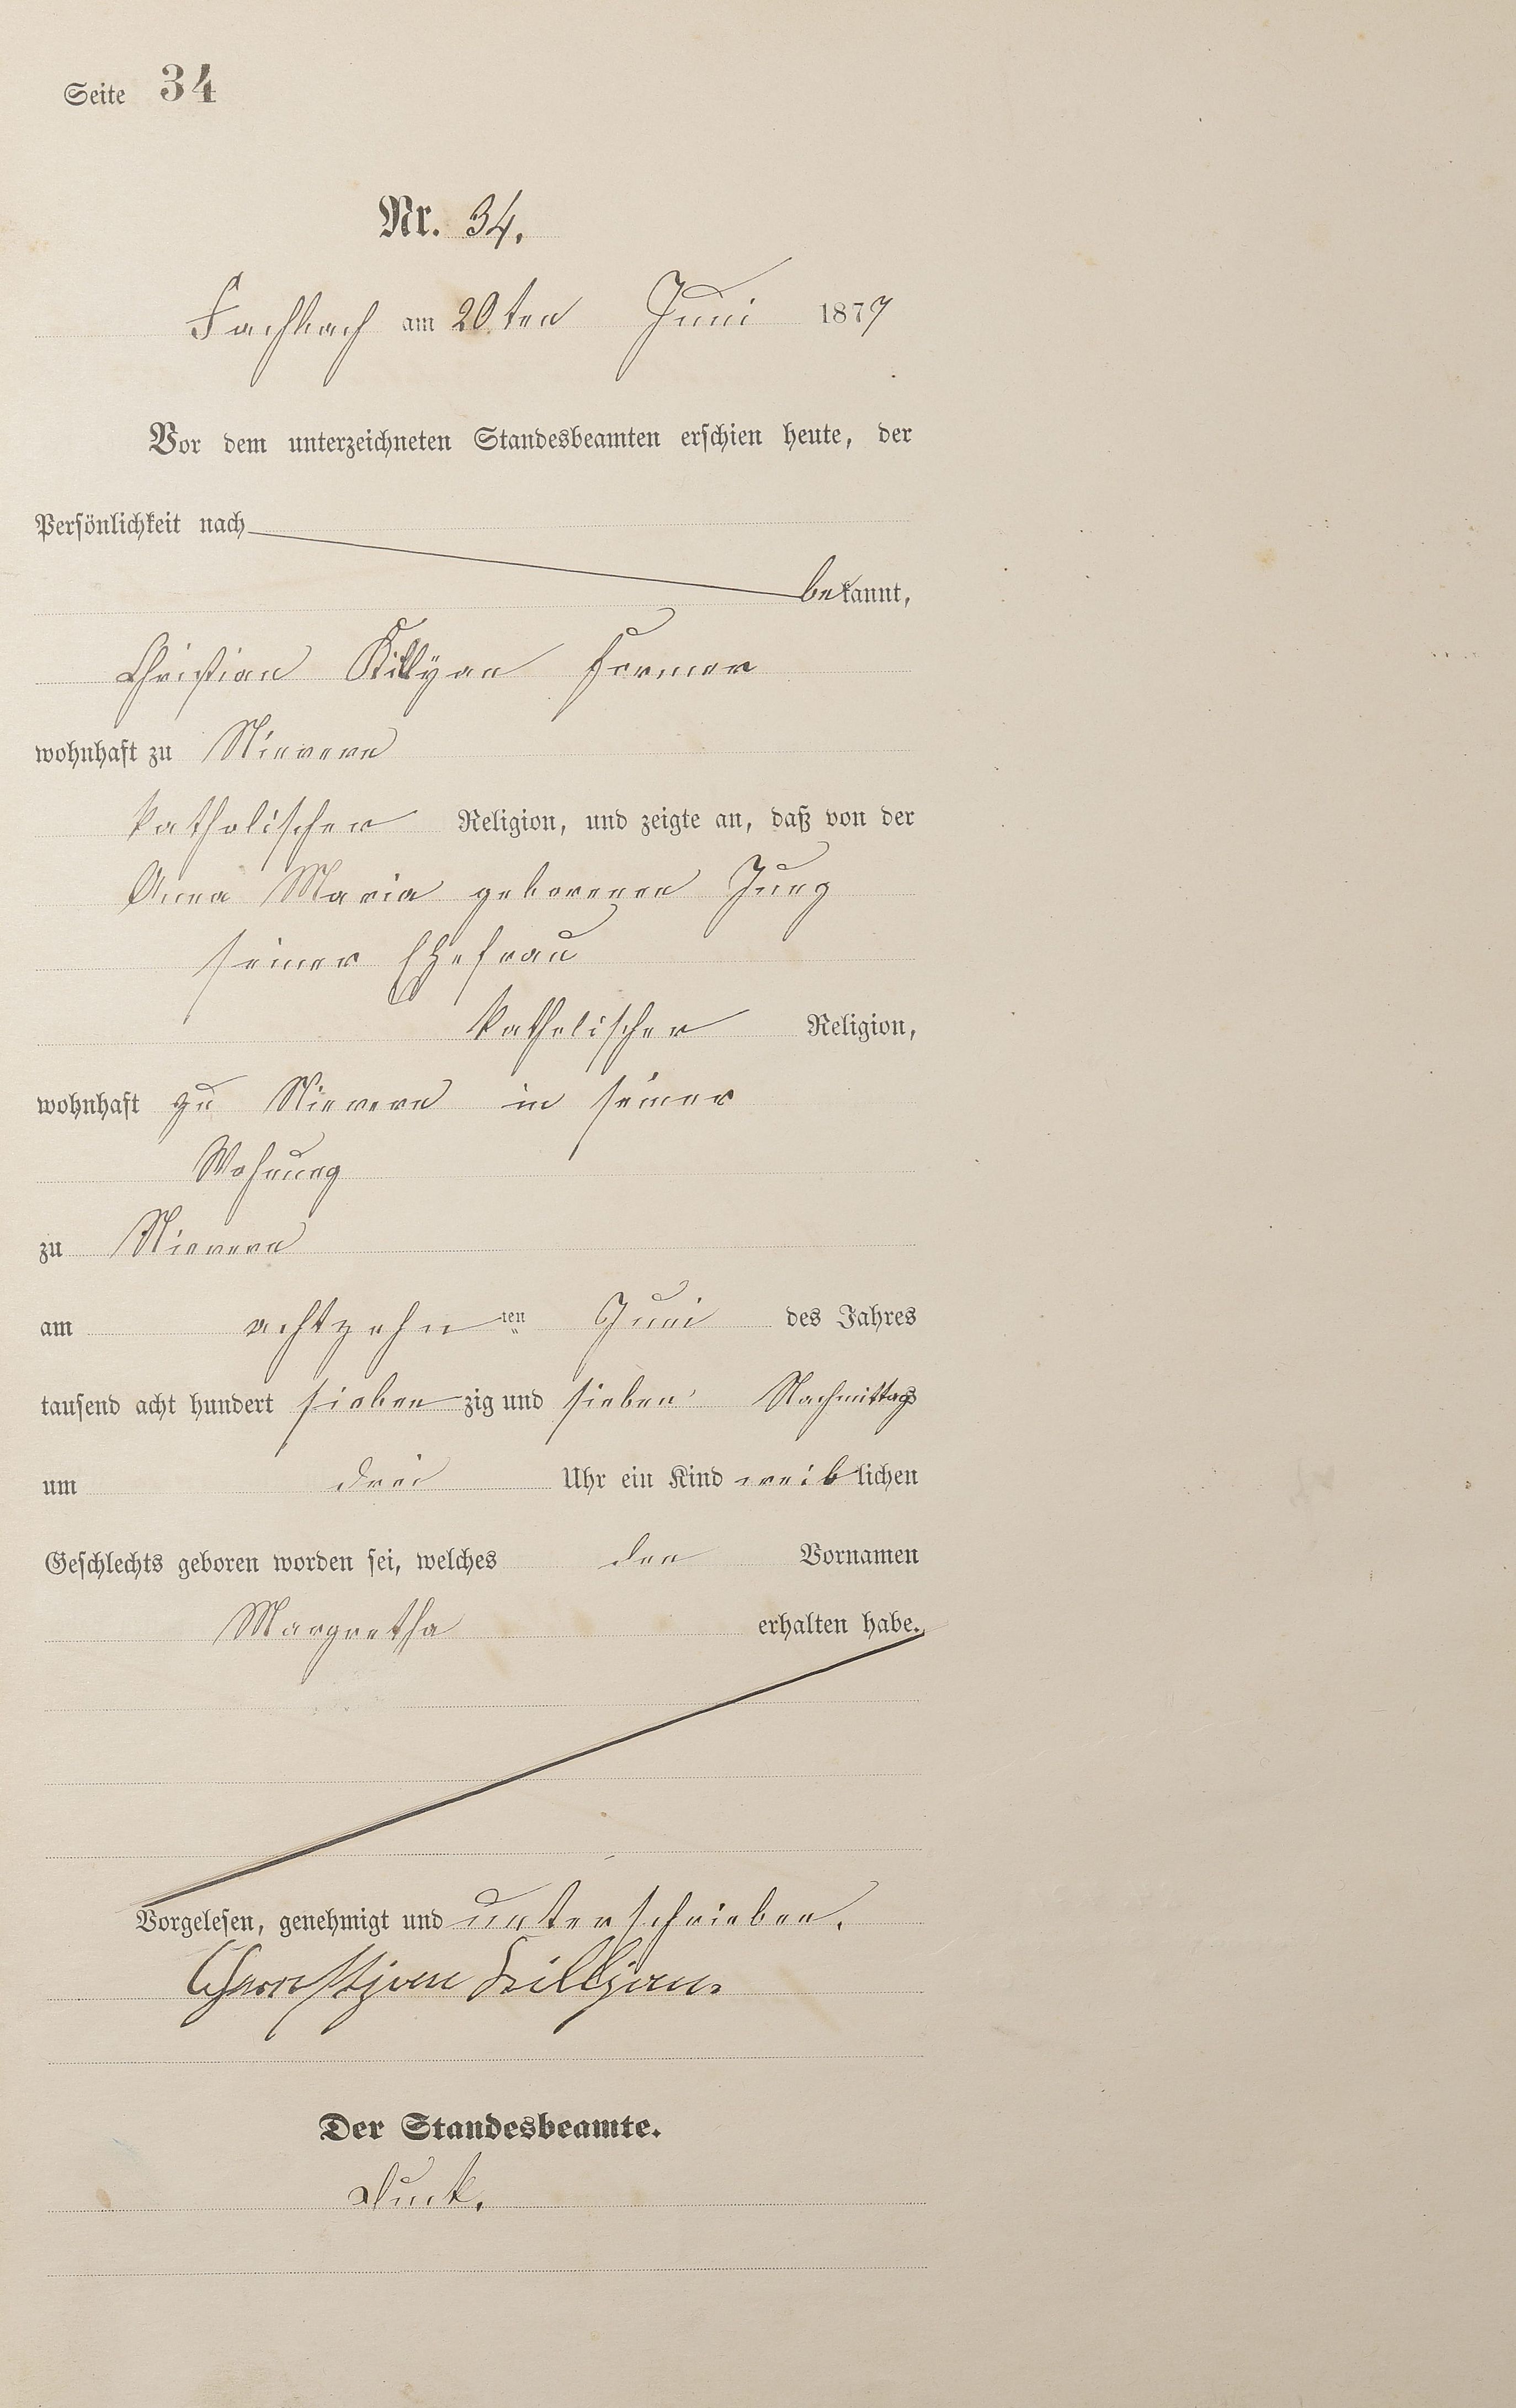 Seite 34
Nr. 34.
Fachbach am 20ten Juni 1877
Vor dem unterzeichneten Standesbeamten erschien heute, der
Persönlichkeit nach
bekannt,
Christian Killÿan Former
wohnhaft zu Nievern
katholischer Religion, und zeigte an, daß von der
Anna Maria geborenen Jung
seiner Ehefrau
katholischer Religion,
wohnhaft zu Nievern in seiner
Wohnung
zu Nievern
am achtzehn ten Juni des Jahres
tausend acht hundert sieben zig und sieben Nachmittags
um drei Uhr ein Kind weiblichen
Geschlechts geboren worden sei, welches den Vornamen
Margretha erhalten habe.
Vorgelesen, genehmigt und unterschrieben.
Christjan Killjan.
Der Standesbeamte.
Duck.